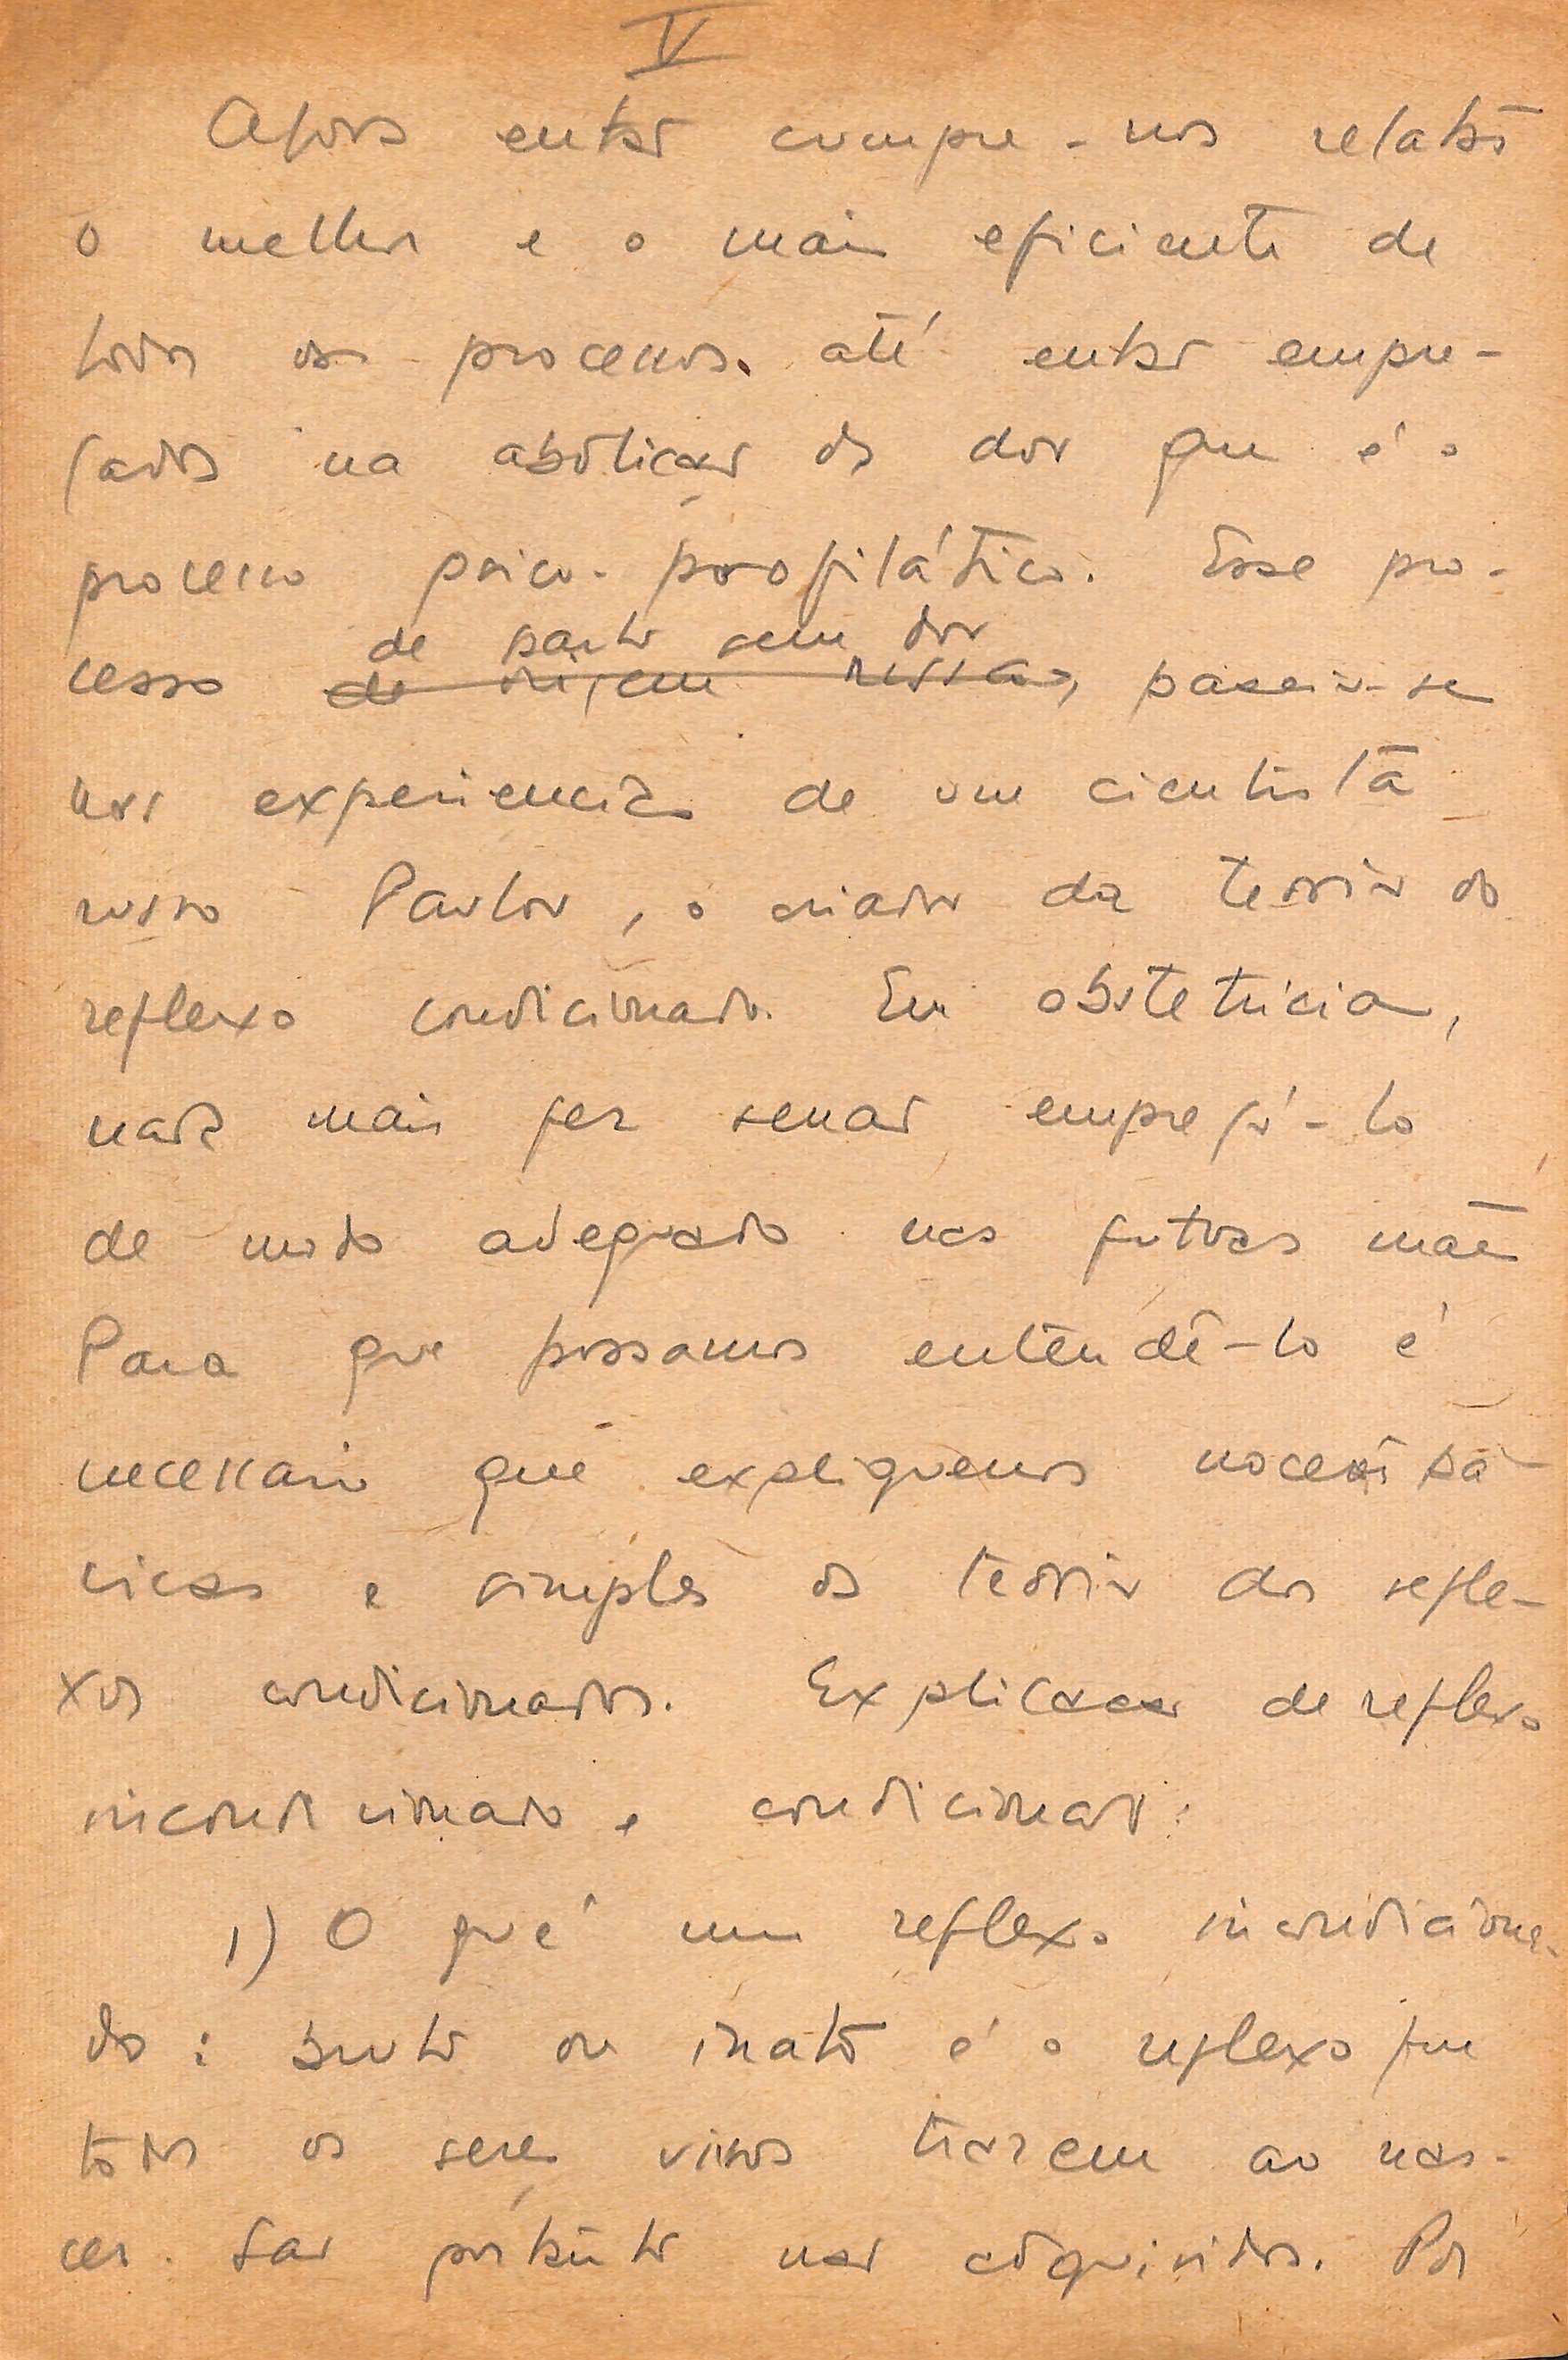 V
Agora então cumpre-nos relatar
o melhor e o mais eficiente de
todos os processos até então empre-
gados na abolição da dor que é o
processo psico-profilático. Esse pro-
de parto sem dor
cesso de origem russa, baseia-se
nas experiencias de um cientista
russo Pavlov, o criador da teoria do
reflexo condicionado. Em obstetricia,
nada mais fez senão empregá-lo
de modo adequado nas futuras mães
Para que possamos entendê-lo é
necessario que expliquemos noções bá-
sicas e simples da teoria dos refle-
xos condicionados. Explicação de reflexo
incondicionado e condicionado:
1) O que é um reflexo incondiciona-
do: bruto ou inato é o reflexo que
todos os seres vivos trazem ao nas-
cer. São portanto não adquiridos. Por